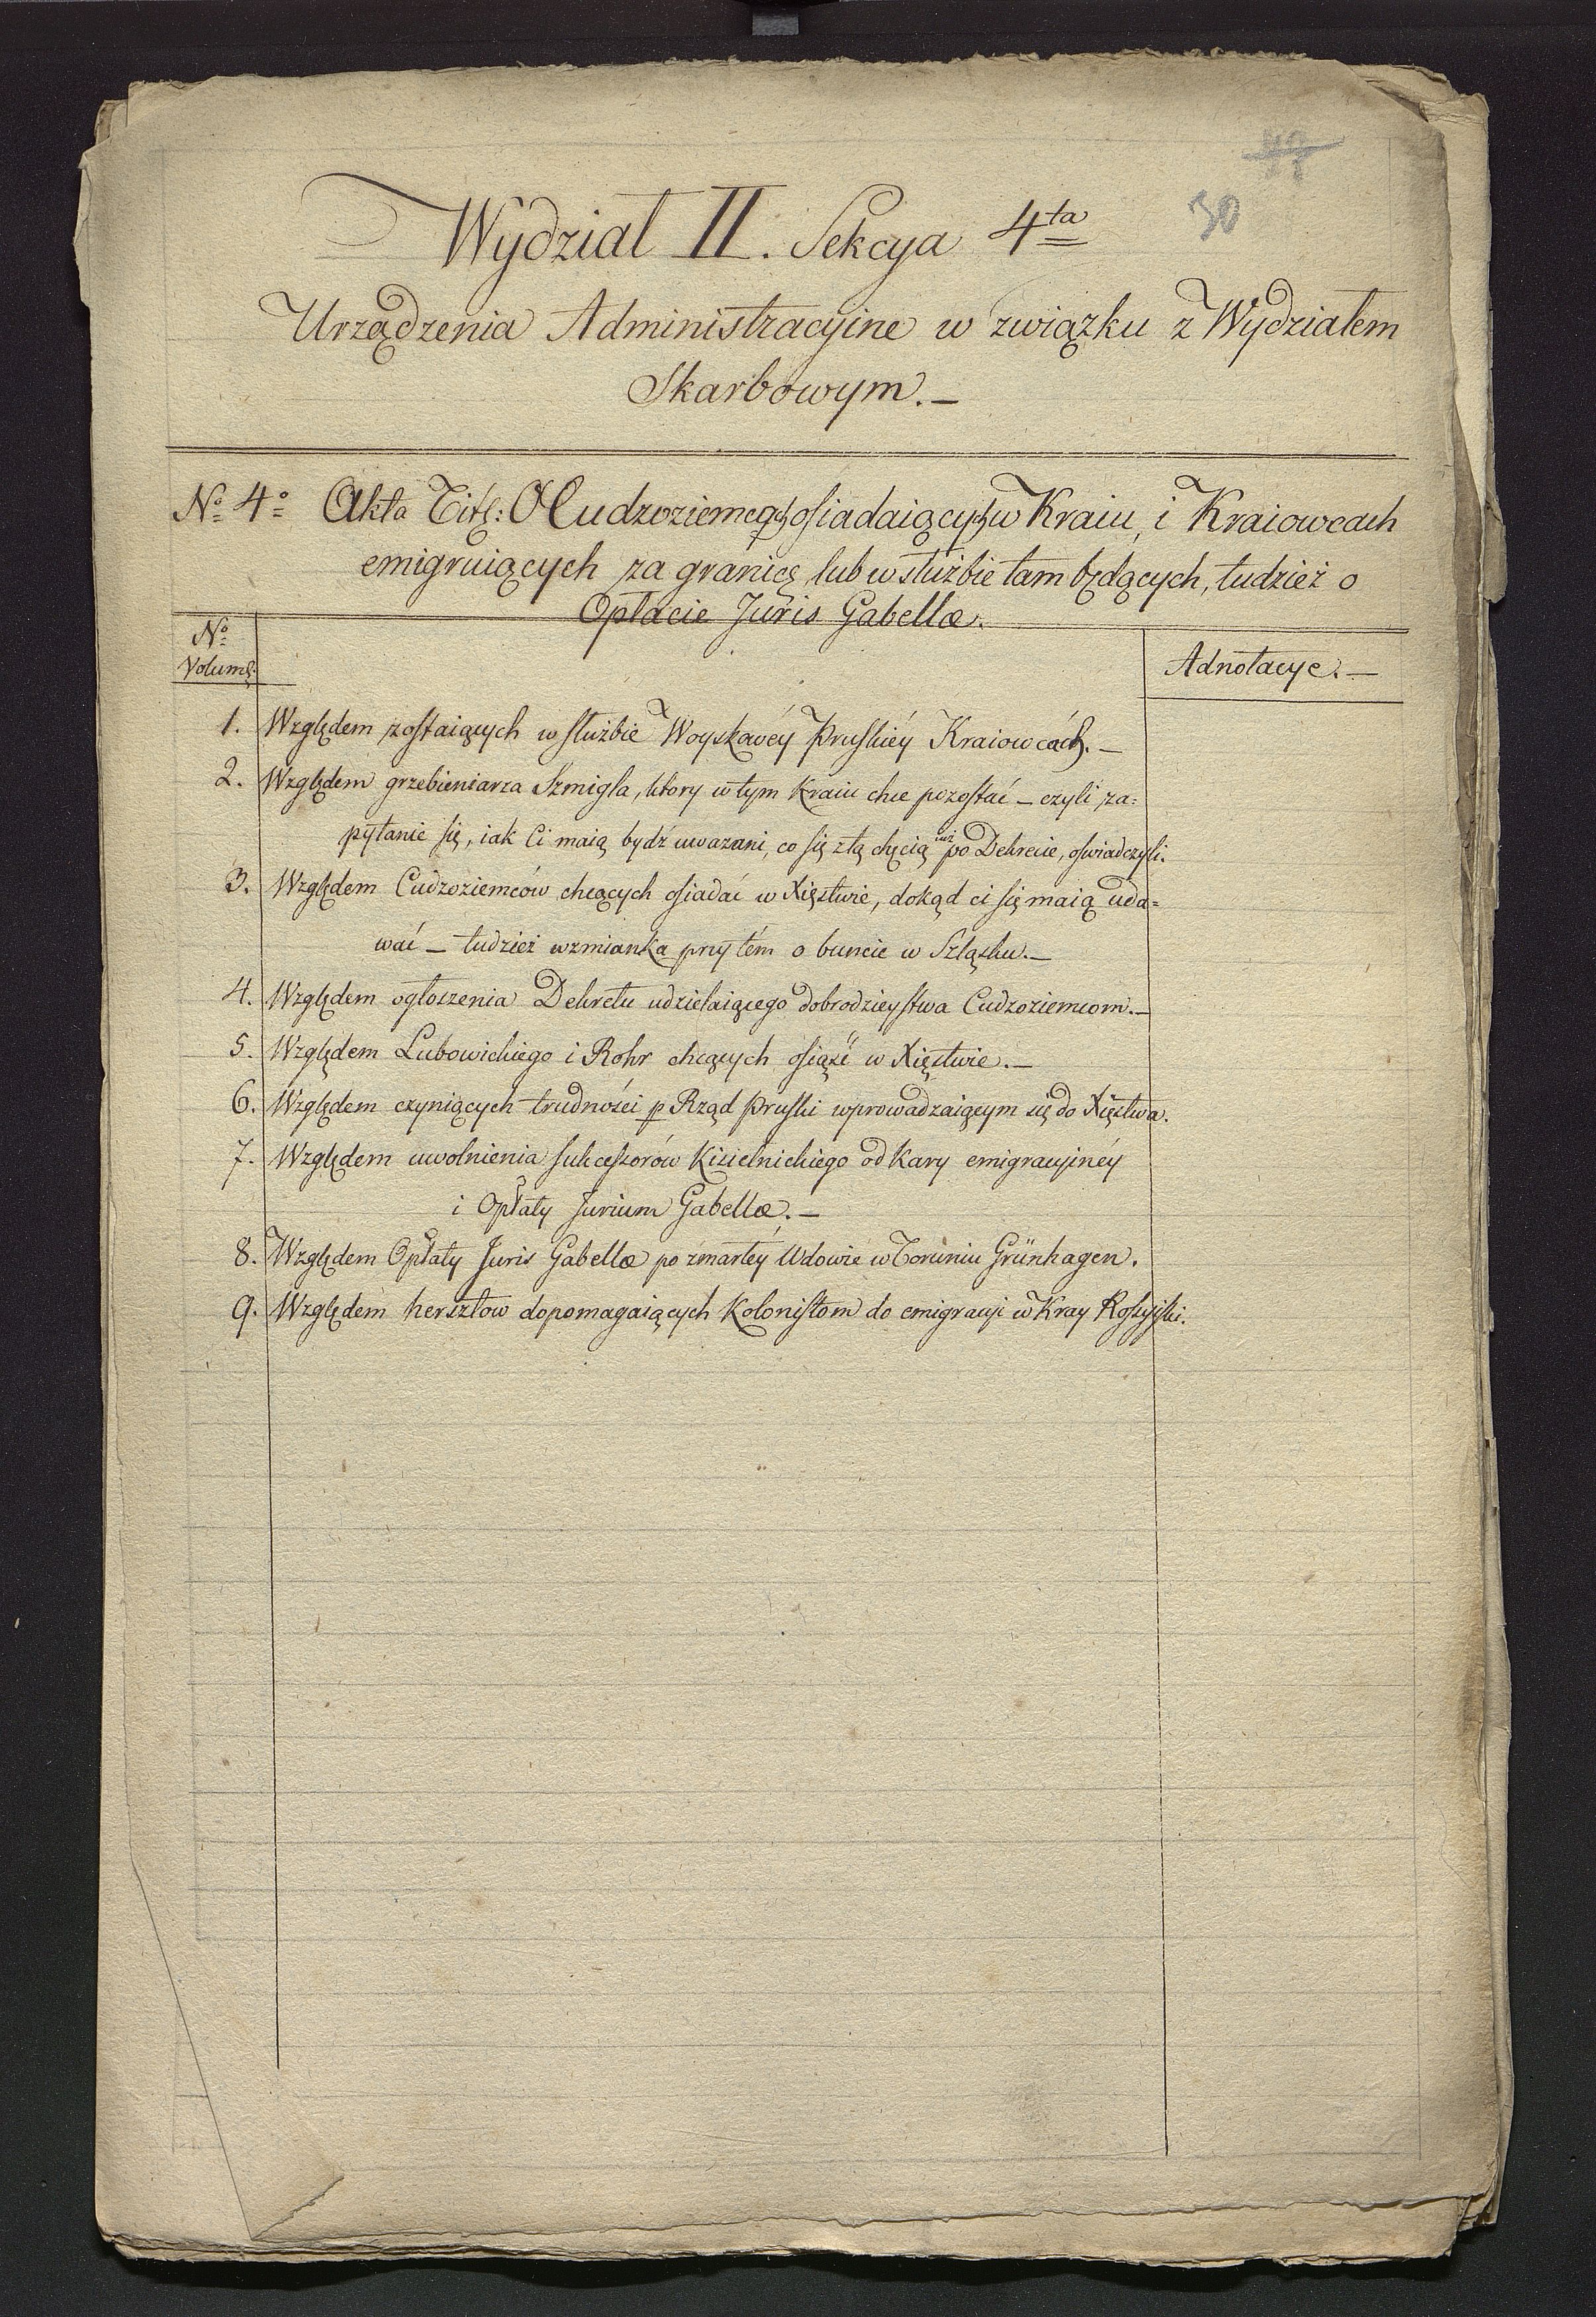 30
Wydział II. Sekcya 4ta
Urządzenia Administracyine w związku z Wydziałem
Skarbowym. —
No 4o Akta Titt: O Cudzoziemcach osiadaiących w Kraiu, i Kraiowcach
emigruiących za granicę, lub w służbie tam będących, tudzież o
Opłacie Juris Gabellæ.
No
Volumę:
Adnotacye. —
1. Względem zostaiących w służbie Woyskowéy Pruskiéy Kraiowcách. —
2. Względem grzebieniarza Szmigla, ktory w tym Kraiu chce pozostać — czyli za=
pytanie się, iak Ci maią bydź uwazani, co się z tą chęcią iuż po Dekrecie, oswiadczyli.
3. Względem Cudzoziemców chcących osiadać w Xięstwie, dokąd ci się maią uda=
wać — tudzież wzmianka przytém o buncie w Szląsku. —
4. Względem ogłoszenia Dekretu udzielaiącego dobrodzieystwa Cudzoziemcom. —
5. Względem Lubowickiego i Rohr chcących osiąść w Xięstwie. —
6. Względem czyniących trudności p Rząd Pruski wprowadzaiącym się do Xięstwa.
7. Względem uwolnienia sukcessorów Kisielnickiego od Kary emigracyinéy
i Opłaty Jurium Gabellæ. —
8. Względem Opłaty Juris Gabellæ po zmarłéy Wdowie w Toruniu Grünhagen.
9. Względem hersztow dopomagaiących Kolonistom do emigracyi w Kray Rossyiski.